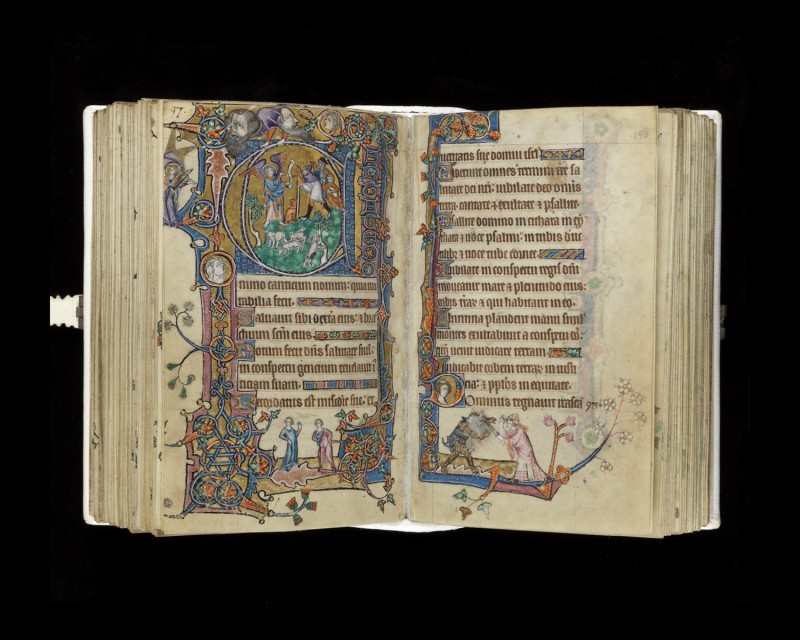 mino canticum nouum: quia mi
rabilia fecit.
Saluauit sibi dextera eius: & bra
chium scm eius.
Notum fecit dns salutare suu:
in conspectu gencium reuelauit
iusticiam suam.
Recordatus est misericordie sue: et
ueritatis sue domui isrl.
Viderunt omnes termini terre sa
lutare dei nri: iubilate deo omnis
terra cantate & exultate & psallite.
Psallite domino in cithara in cy
thara & uoce psalmi: in tubis duc
tilibz & uoce tube cornee.
Iubilate in conspectu regis dni
moueatur mare & plenitudo eius:
orbis trarz & qui habitant in eo.
Flumina plaudent manu simul
montes exultabunt a conspectu
qm uenit iudicare terram
Iudicabit orbem terrarz in iusti
cia: & pplos in equitate.
Dominus regnauit irascatr